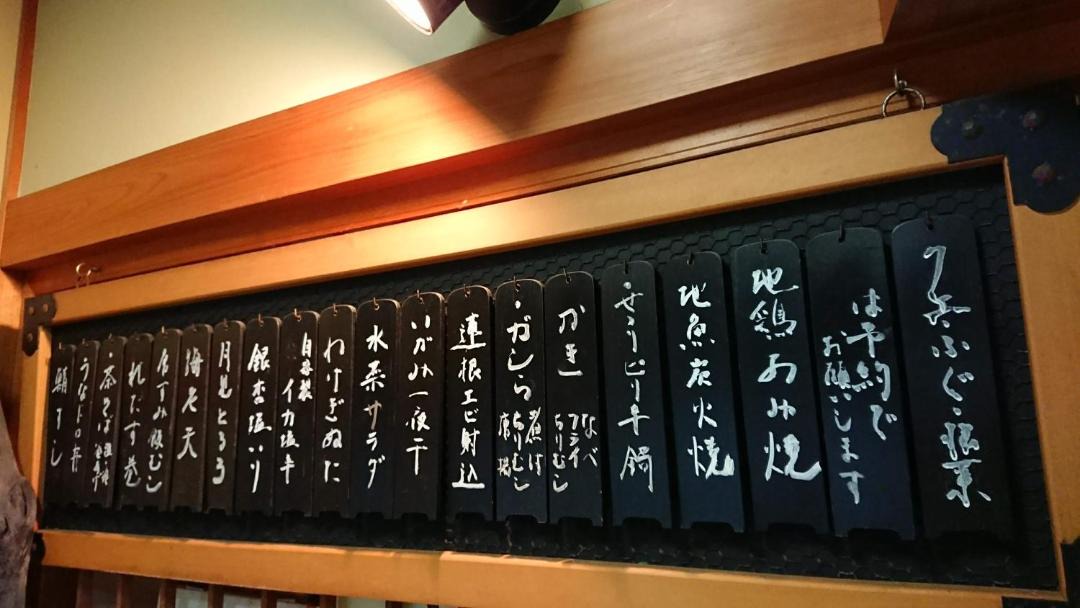 ふぐ・
は予約で
お願いします
地鶏あみ焼
地魚炭火焼
せりとり牛鍋
かき
なべ
フライ
ちりむし
・ガしら
煮付
ちりむし
唐揚
蓮根エビ射込
いがみ一夜干
水菜サラダ
わけぎぬた
自家製
イカ塩辛
銀杏塩いり
月見とろろ
海老天
れたす巻
・茶そば
うなトロ丼